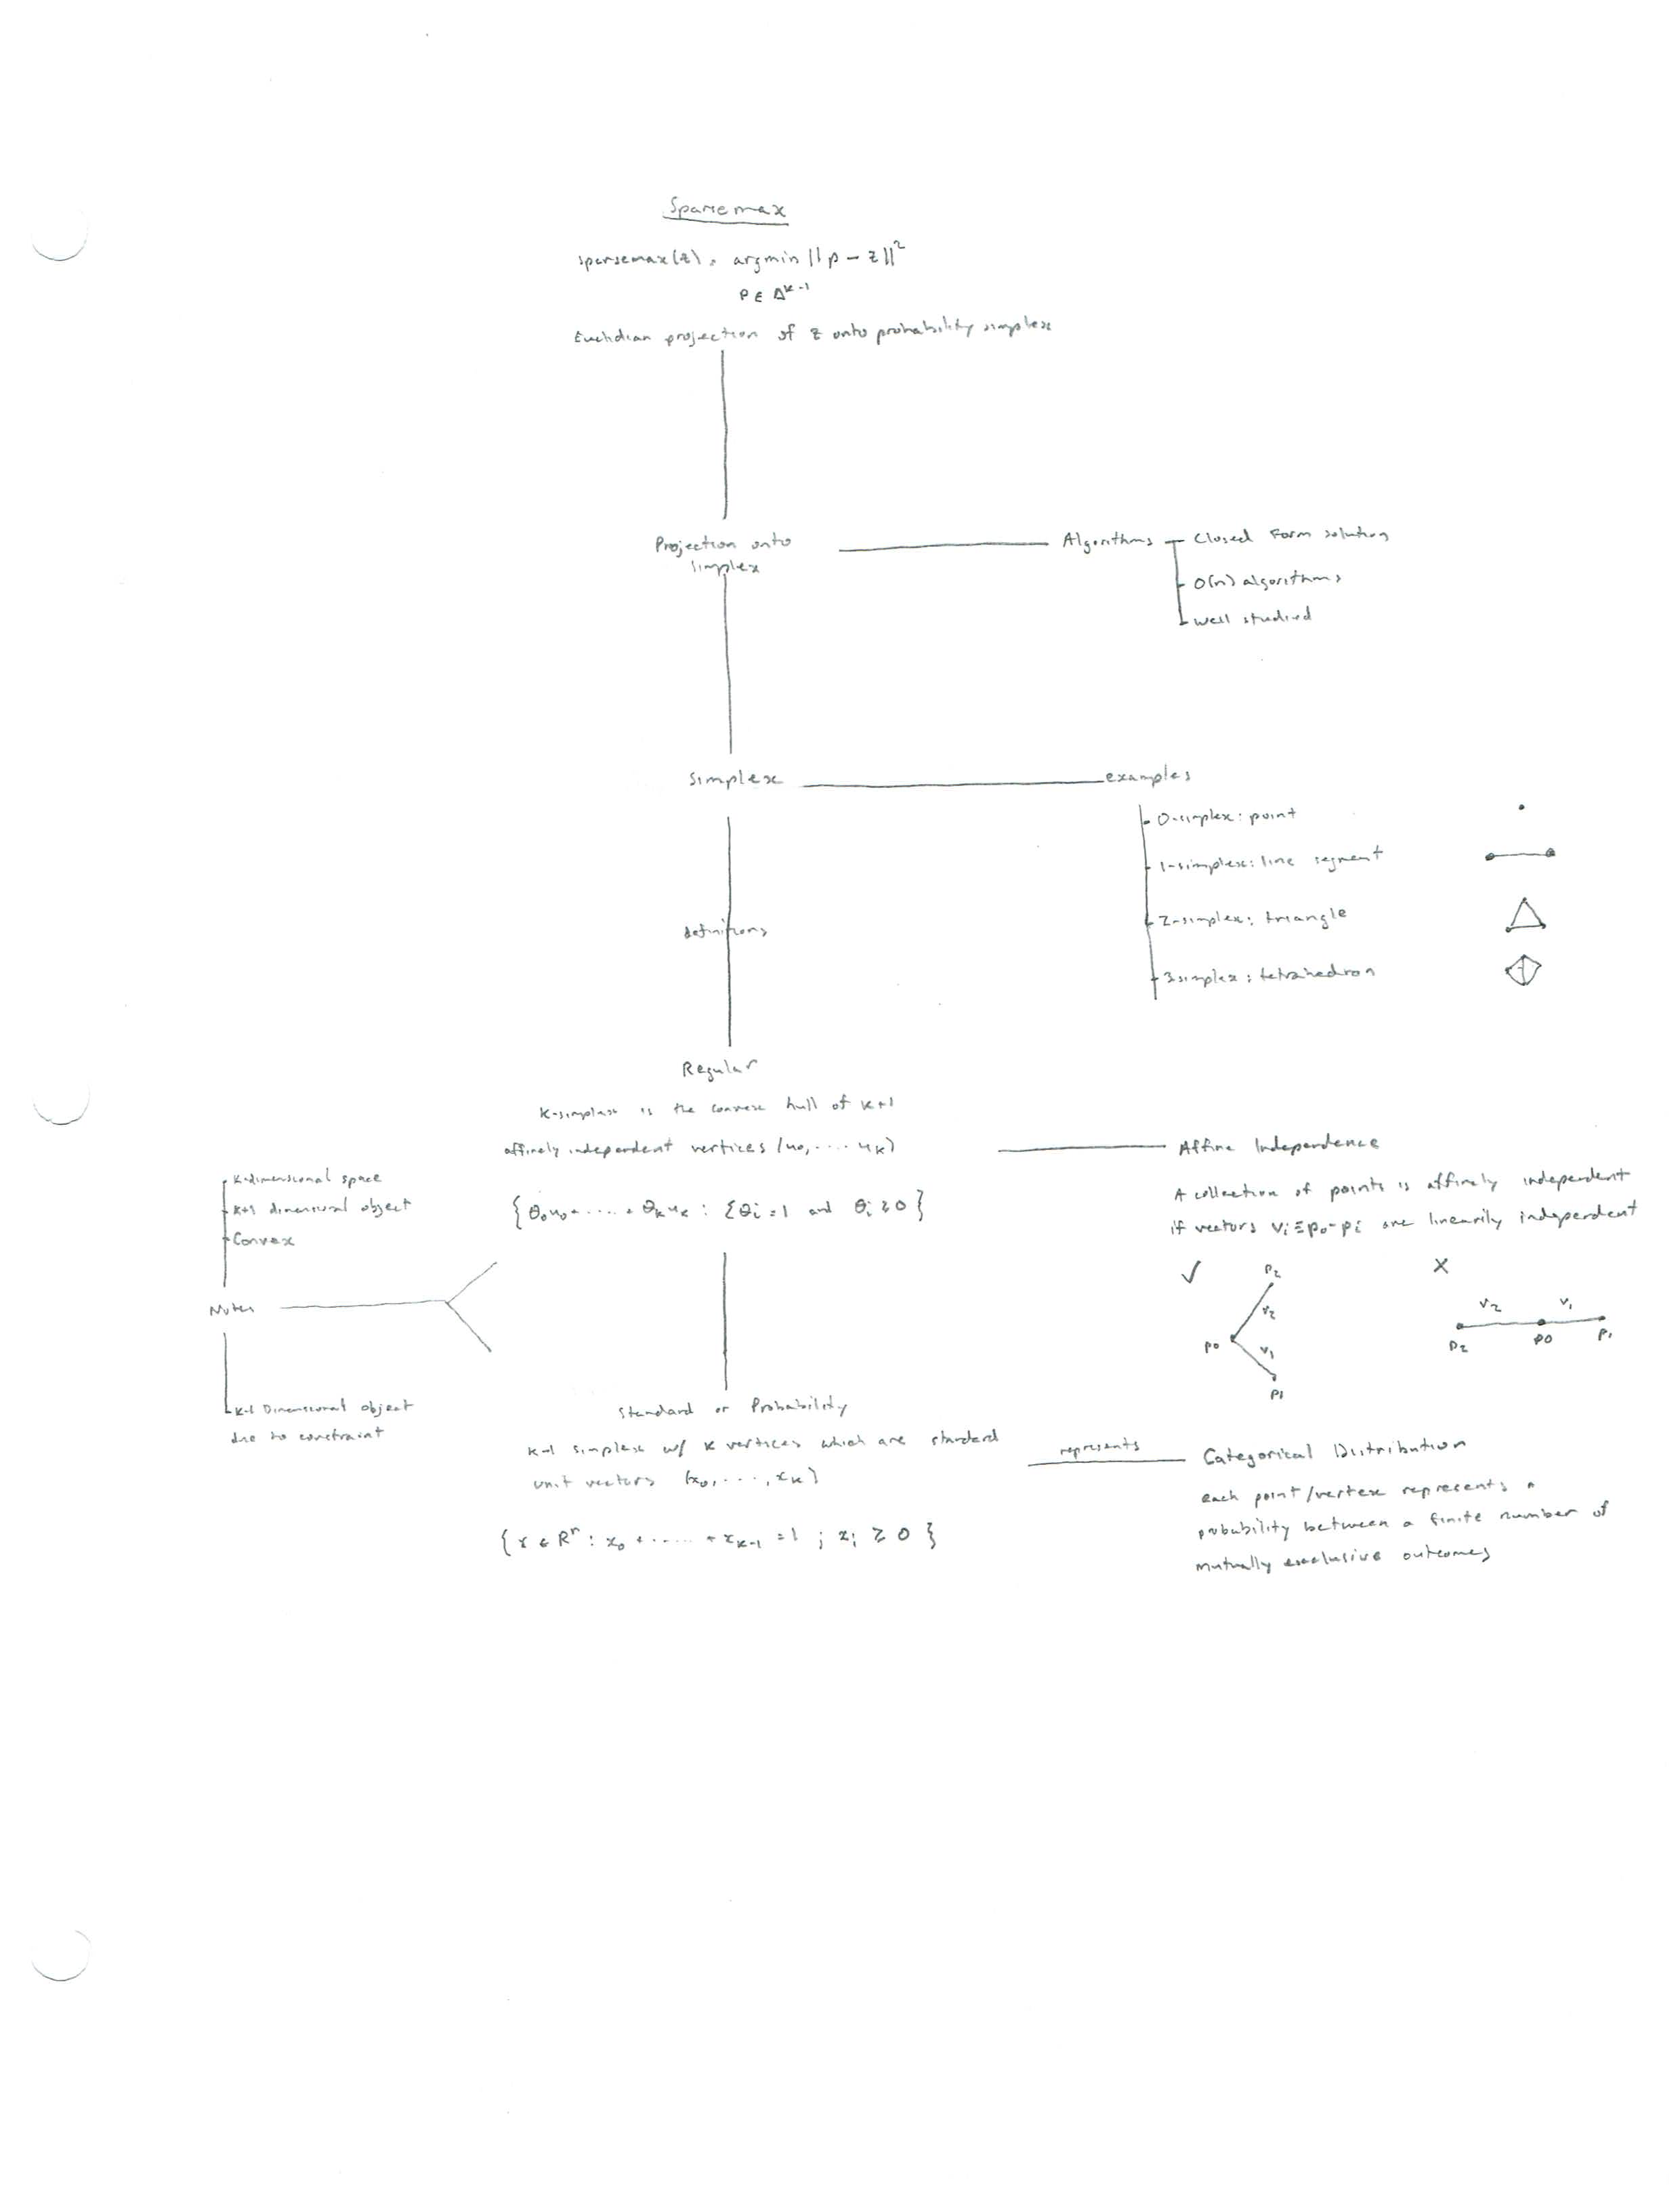 Sparsemax
sparsemax(z) = argmin ||p - z||²
p ∈ Δᵏ⁻¹
Euclidian projection of z onto probability simplex
Projection onto
simplex
Algorithms
Closed Form solution
O(n) algorithms
well studied
Simplex
examples
0-simplex: point
1-simplex: line segment
2-simplex: triangle
3simplex: tetrahedron
definitions
Regular
K-simplex is the convex hull of k+1
affinely independent vertices (u₀, .... uₖ)
{θ₀u₀+.....+θₖuₖ : Σθi=1 and θi≥0}
Affine Independence
A collection of points is affinely independent
if vectors vi≡p₀-pi are linearily independent
✓
P₂
v₂
P0
v₁
P1
X
v₂
v₁
P₂
P0
P₁
K-dimensional space
K+1 dimensional object
Convex
Notes
K-1 Dimensional object
due to constraint
Standard or Probability
K-1 simplex w/ K vertices which are standard
unit vectors (x₀, ...., xₖ)
{x ∈ Rⁿ : x₀ + ..... + xₖ₋₁ = 1 ; xi ≥ 0}
represents
Categorical Distribution
each point/vertex represents a
probability between a finite number of
mutually exclusive outcomes